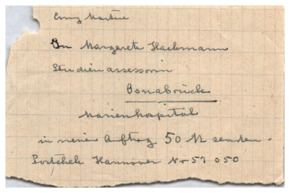 An Margarete Hackmann
Studienassessorin
Osnabrück
Marienhospital
in meine Auftrag 50 M senden.
Postscheck Hannover Nr 57 050